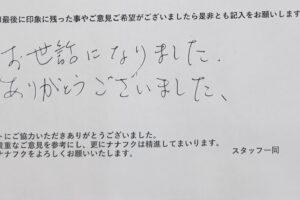 最後に印象に残った事やご意見ご希望がございましたら是非とも記入をお願いします
お世話になりました.
ありがとうございました、
トにご協力いただきありがとうございました。
貴重なご意見を参考にし、更にナナフクは精進してまいります。
ナナフクをよろしくお願いいたします。
スタッフ一同